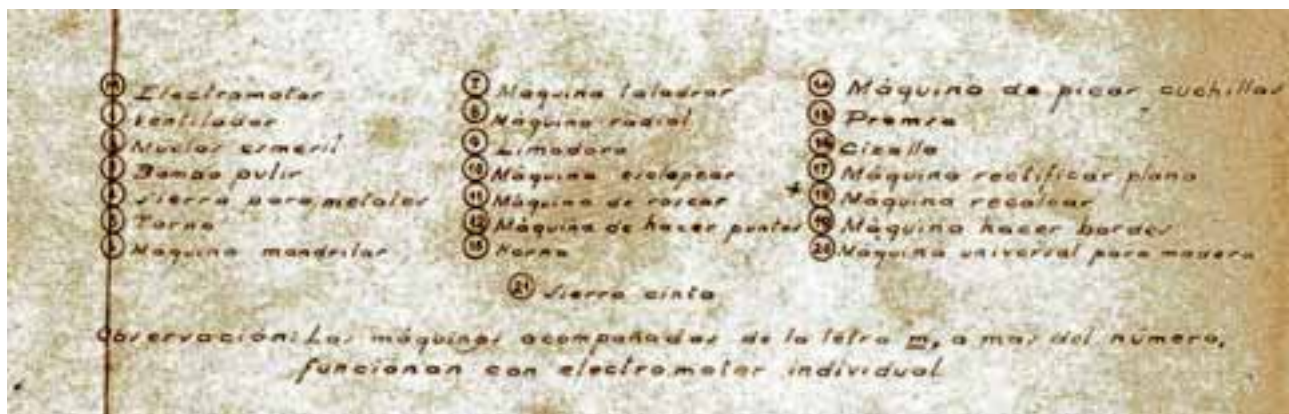 Ⓜ Electromotor
① Ventilador
② Muelas esmeril
③ Bombo pulir
④ Sierra para metales
⑤ Torno
⑥ Máquina mandrilar
⑦ Máquina taladrar
⑧ Máquina radial
⑨ Limadora
⑩ Máquina esclopear
⑪ Máquina de roscar
⑫ Máquina de hacer puntas
⑬ Horno
⑭ Máquina de picar cuchillas
⑮ Premsa
⑯ Cizalla
⑰ Máquina rectificar plano
⑱ Máquina recalcar
⑲ Máquina hacer bordes
⑳ Máquina universal para madera
㉑ Sierra cinta
Observación: Las máquinas acompañadas de la letra m, a mas del número,
funcionan con electromotor individual